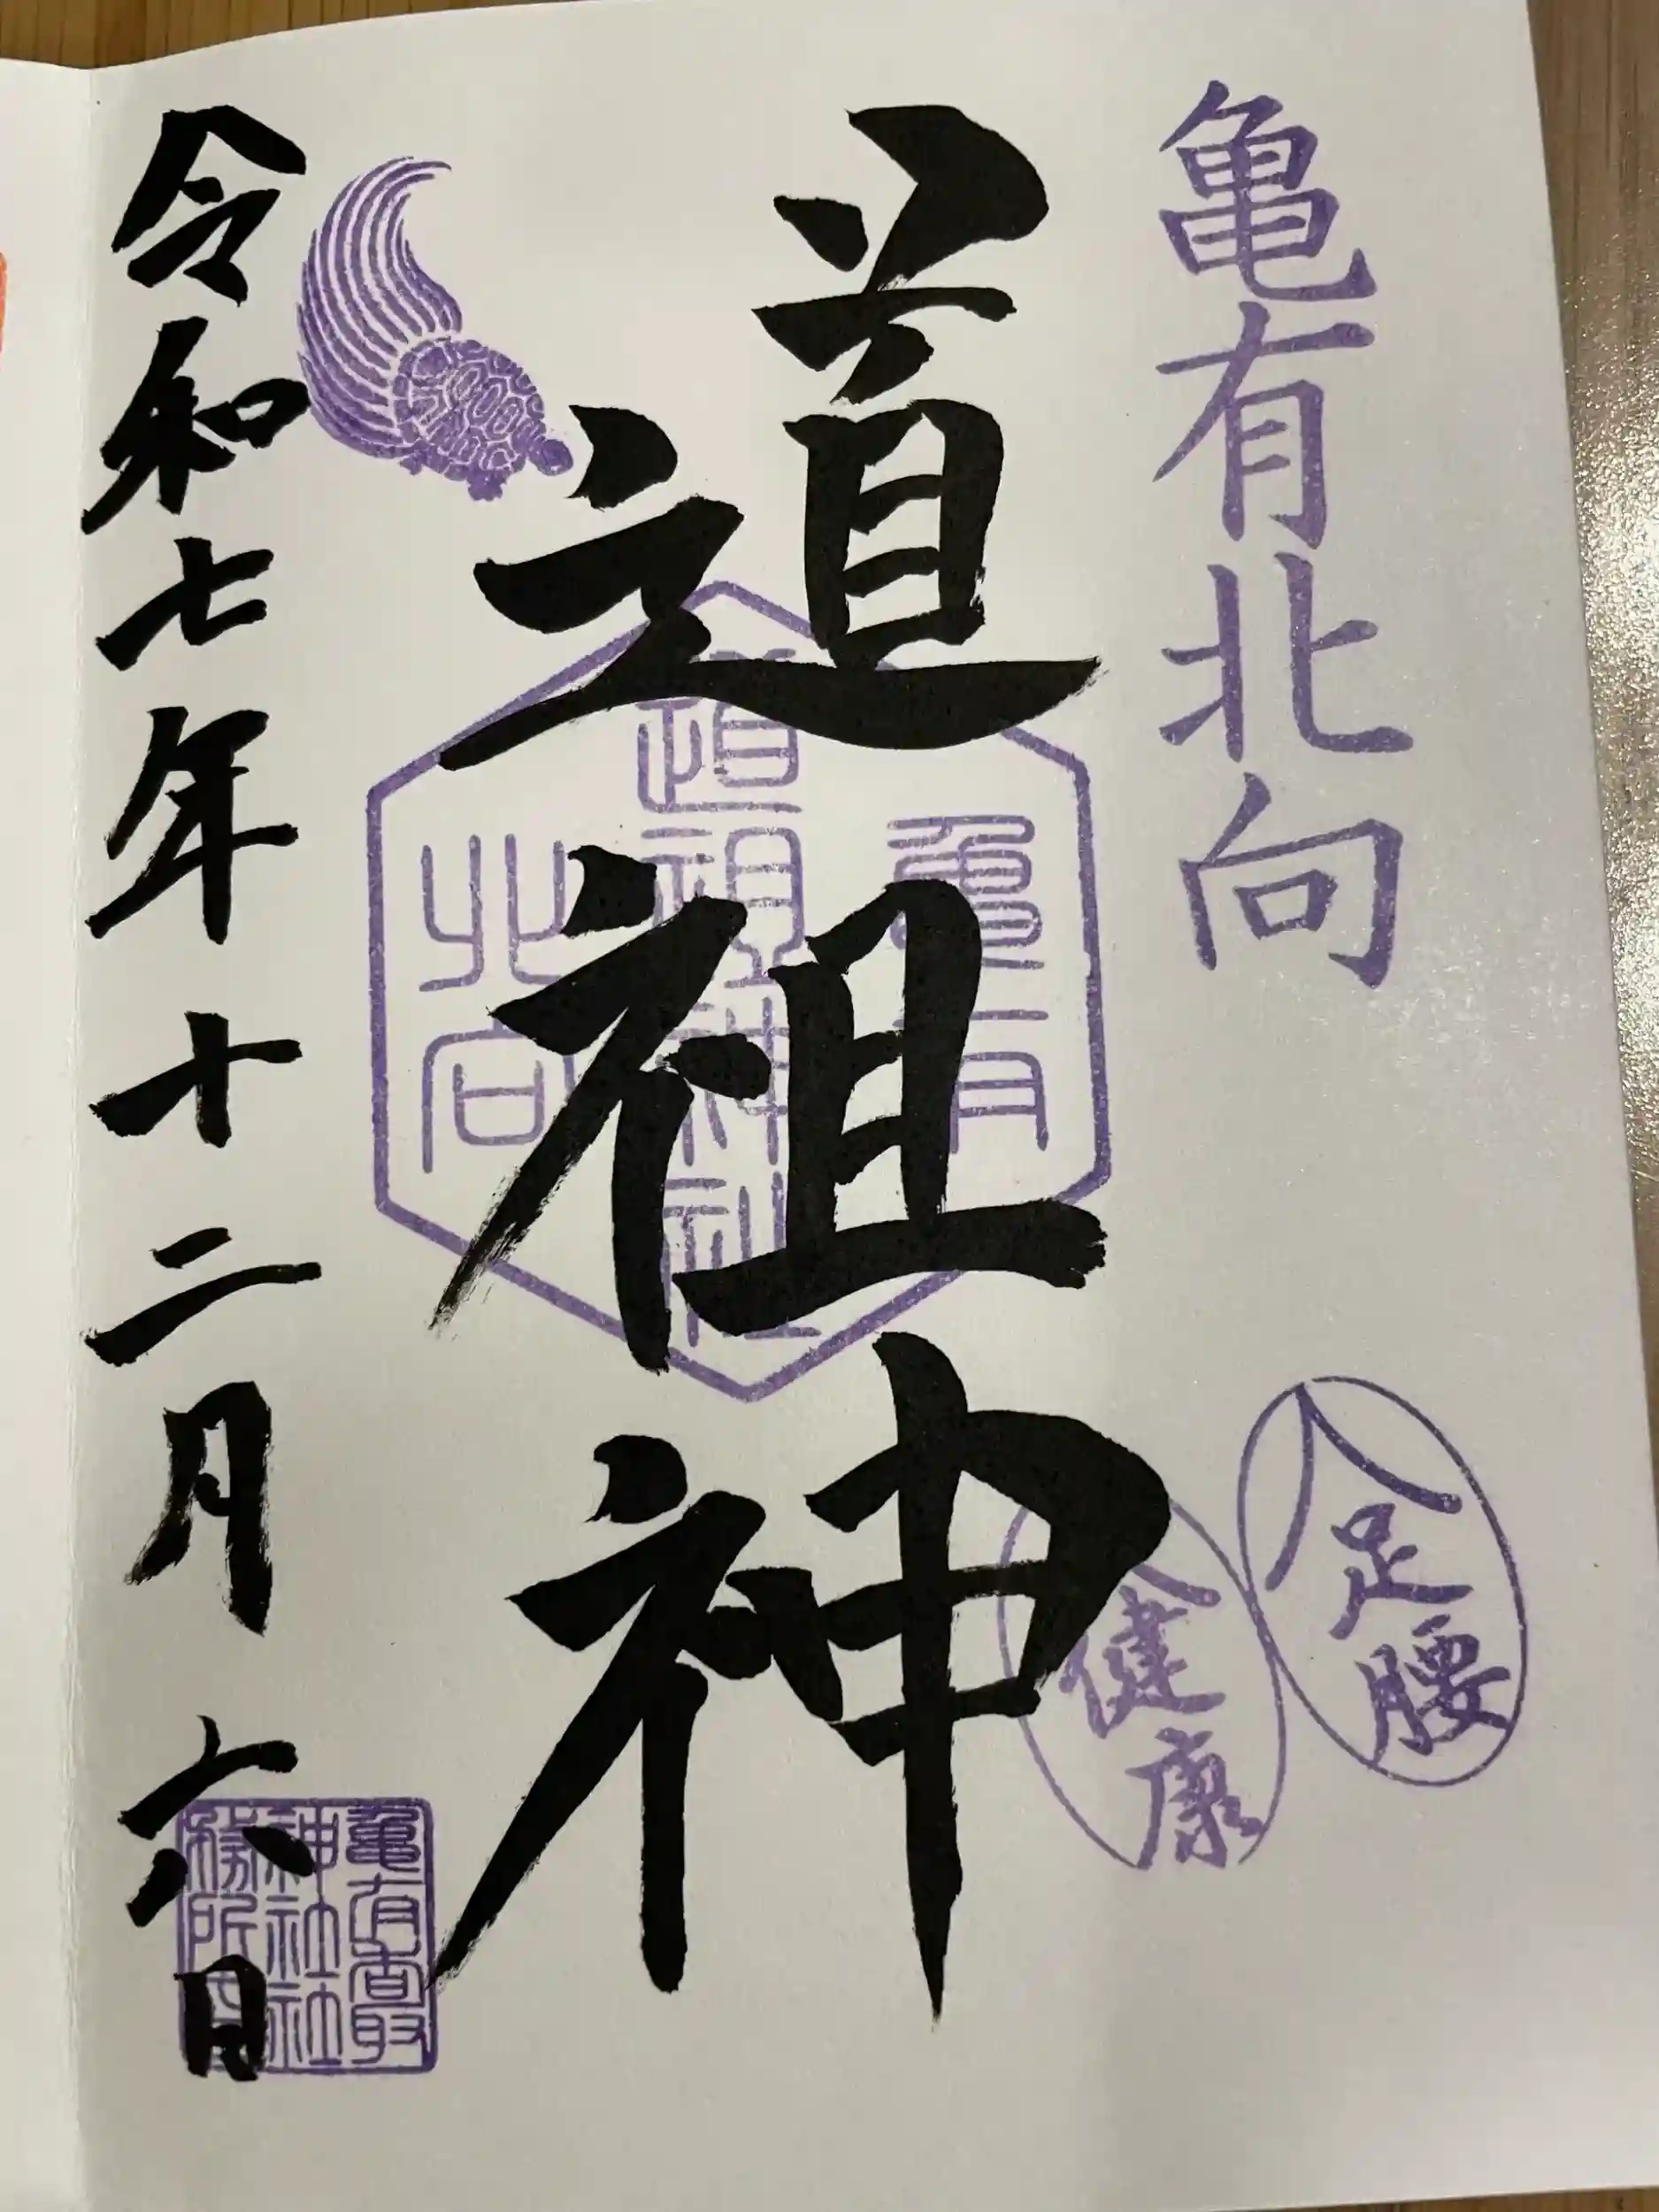 亀有北向
足腰
健康
道祖神
亀有
道祖神神社
北向
令和七年十二月六日
亀有香取
神社社
務所